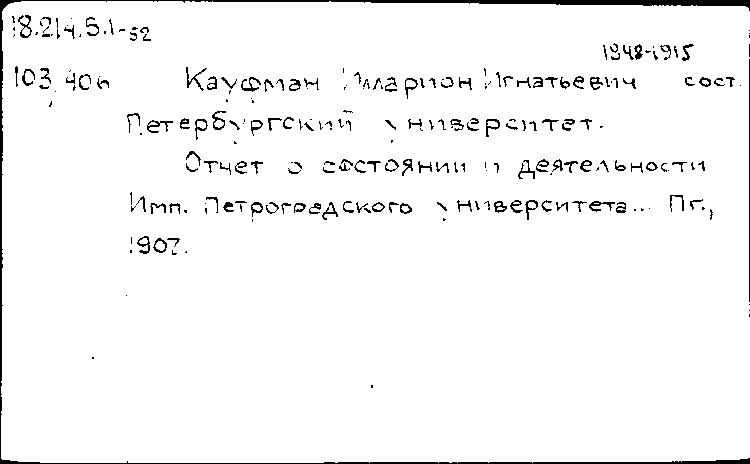 18.214.5.1-52
1848-1915
103, 406 Кауфман Илларион Игнатьевич сост.
Петербургский университет.
Отчет о состоянии и деятельности
Имп. Петроградского университета... Пг.,
1907.